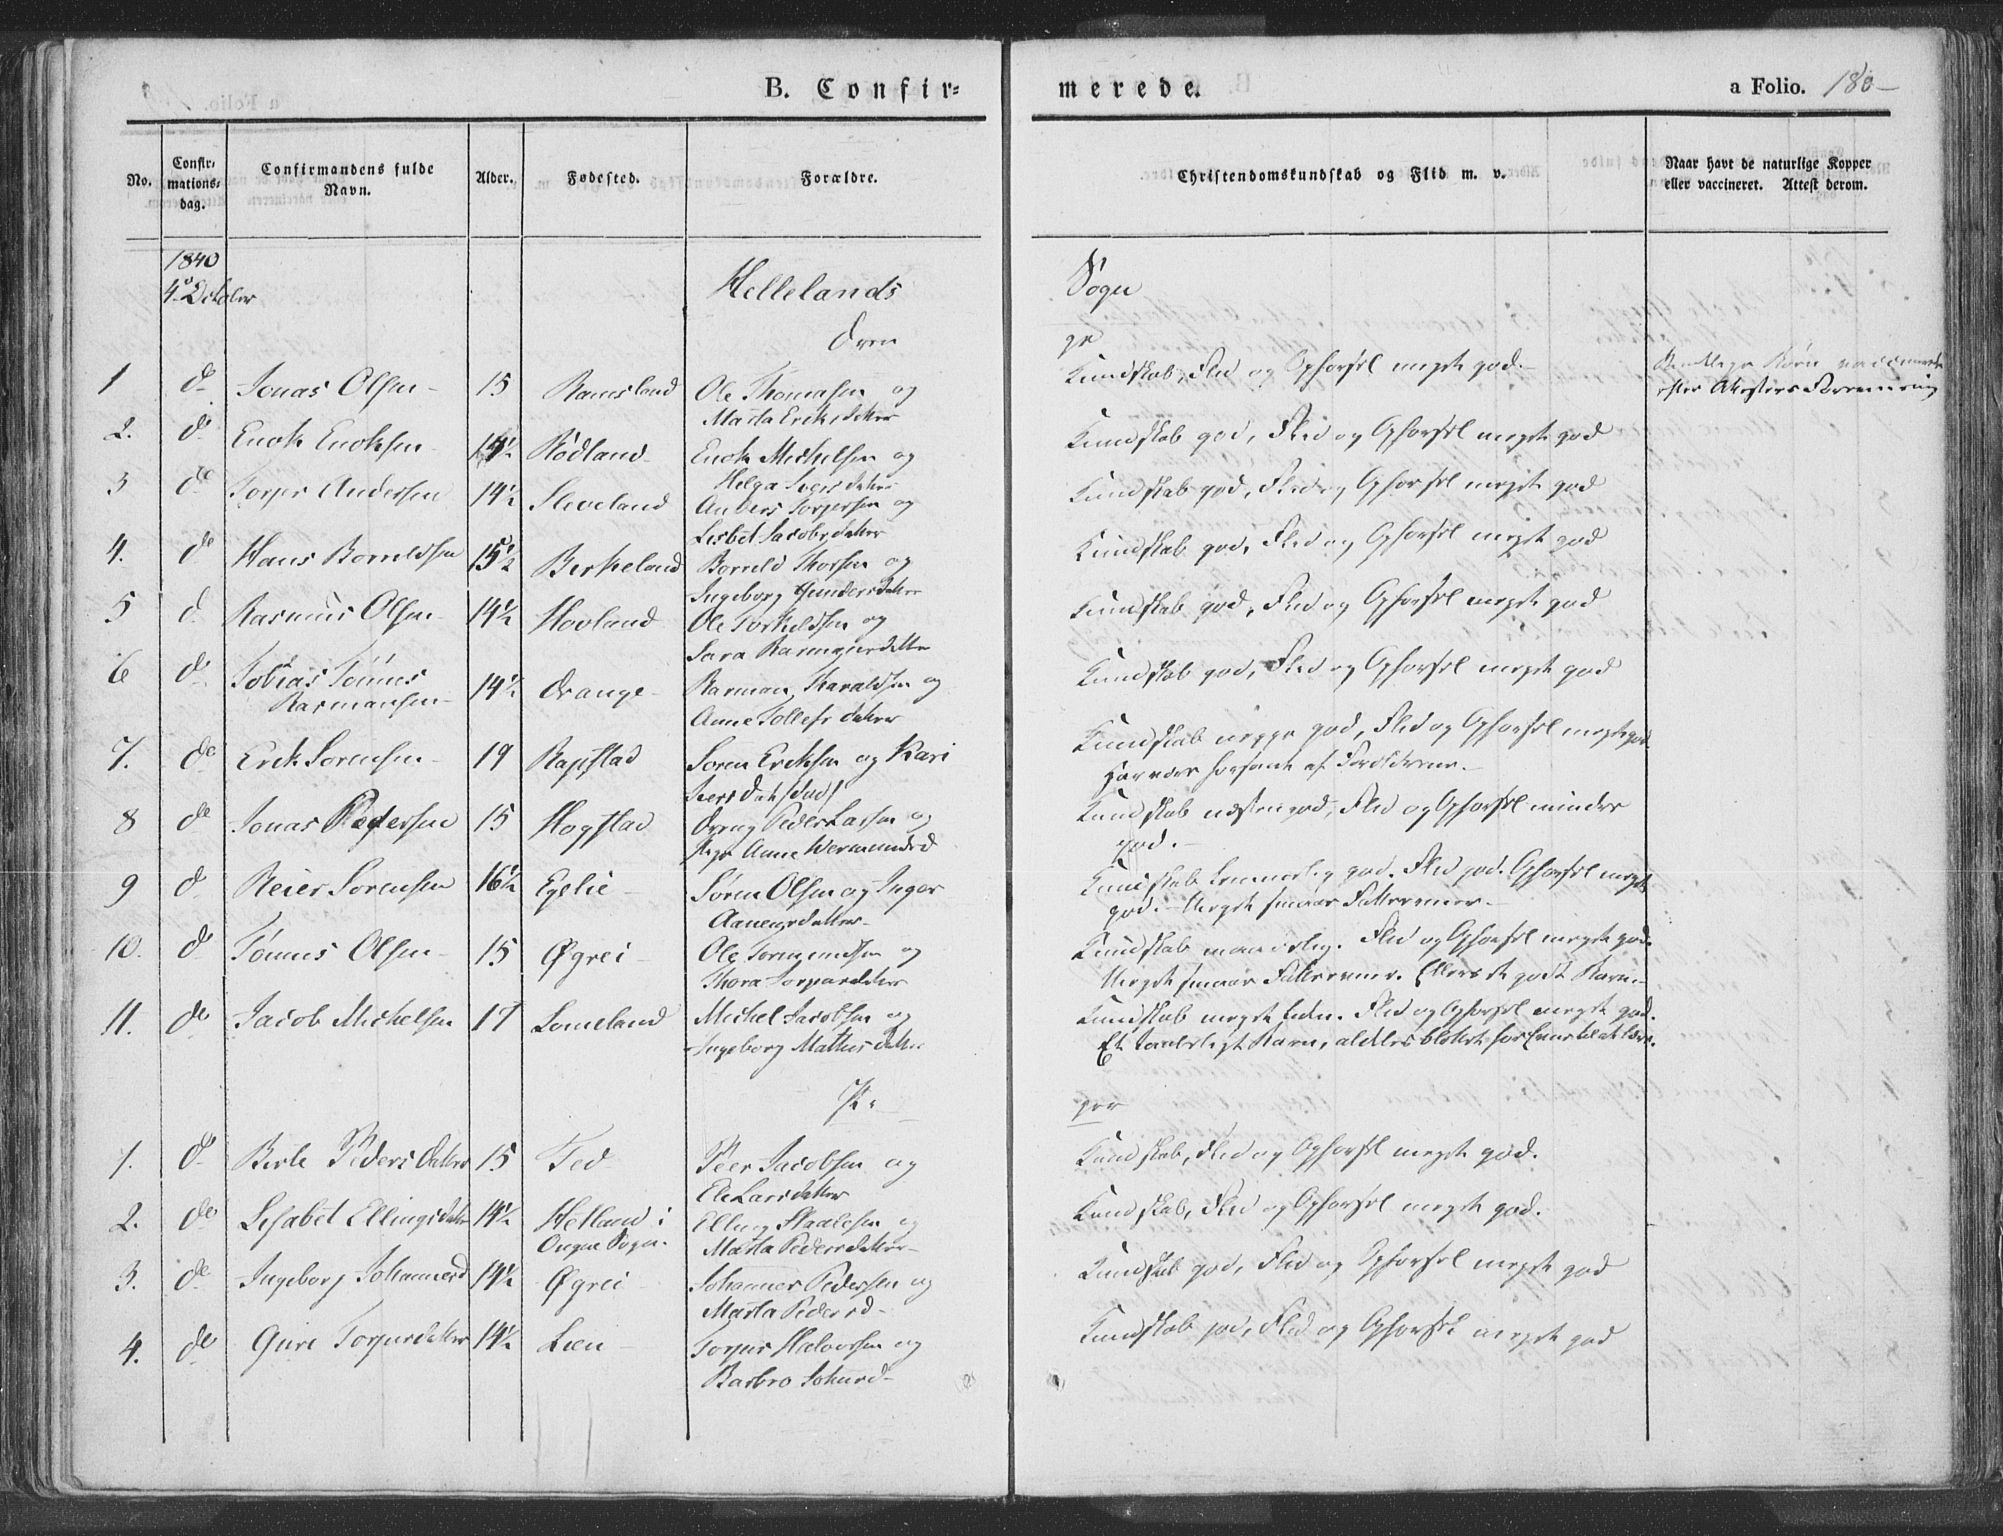 B. Confir=
merede.
a Folio. 180
No.
Confir-
mations-
dag.
Confirmandens fulde
Navn.
Alder.
Fødested.
Forældre.
Christendomskundskab og Flid m. v.
Naar havt de naturlige Kopper
eller vaccineret. Attest derom.
1840
4 October
Hellelands
Sogn
Dren
ge
1 do Jonas Olsen 15 Ramsland Ole Thomasen og
Marta Eriksdatter
Kundskab, Flid og Opførsel meget god.
Børn vaccinerede
efter Attesters Forevisning
2. do Enok Enoksen 14½ Rødland Enok Michelsen og
Helga Iversdatter
Kundskab god, Flid og Opførsel meget god
3 do Torger Andersen 14½ Sleveland Anders Torgersen og
Lisbet Jacobsdatter
Kundskab god, Flid og Opførsel meget god
4. do Hans Borrildsen 15½ Birkeland Borrild Thorsen og
Ingeborg Gundersdatter
Kundskab god, Flid og Opførsel meget god
5 do Rasmus Olsen 14½ Hovland Ole Torkildsen og
Sara Rasmusdatter
Kundskab god, Flid og Opførsel meget god
6 do Tobias Tönnes
Rasmussen 14½ Drange Rasmus Haraldsen og
Anne Tollefsdatter
Kundskab god, Flid og Opførsel meget god
7. do Erik Sörensen 19 Rapstad Sören Eriksen og Kari
Iversdat
Kundskab neppe god, Flid og Opførsel meget god
Har været forsømt af Forældrene.
8 do Jonas Pedersen 15 Hogstad Dreng Peder Larsen og
Pige Anne Wermundsd
Kundskab næsten god, Flid og Opførsel mindre
god.
9 do Reier Sörensen 16½ Egelie Søren Olsen og Inger
Aanensdatter
Kundskab temmelig god. Flid god. Opførsel meget
god. Meget smaae Fatteevner.
10. do Tönnes Olsen 15 Øgrei Ole Tormundsen og
Thora Torgersdatter
Kundskab maadelig. Flid og Opførsel meget god.
Meget smaae Fatteevner. Ellers et godt Barn.
11. do Jacob Michelsen 17 Lomeland Michel Jacobsen og
Ingeborg Mathisdatter
Kundskab meget liden. Flid og Opførsel meget god.
Et Barn, aldeles blottet for Evne til at lære.
Pi-
ger
1. do Berte Pedersdatter 15 Ted Peer Jacobsen og
Eli Larsdatter
Kundskab, Flid og Opførsel meget god.
2. do Lisabet Ellingsdatter 14½ Helland i
Ougne Sogn. Elling Staalesen og
Marta Pedersdatter
Kundskab, Flid og Opførsel meget god.
3. do Ingeborg Johannesd 14½ Øgrei Johannes Pedersen og
Marta Pedersd
Kundskab god, Flid og Opførsel meget god
4. do Guri Torgersdatter 14½ Lien Torger Halvorsen og
Barbro Johnsd
Kundskab god, Flid og Opførsel meget god